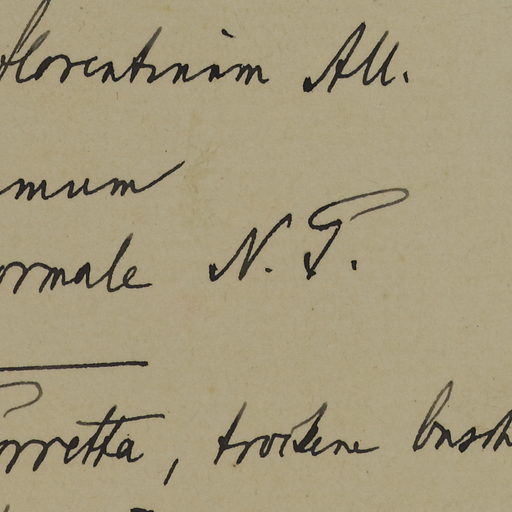 florentinum All.
mum
ormale N. P.
orretta, trockene busch